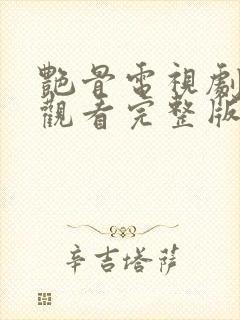 艷骨電視劇
觀看完整版
辛吉塔薩